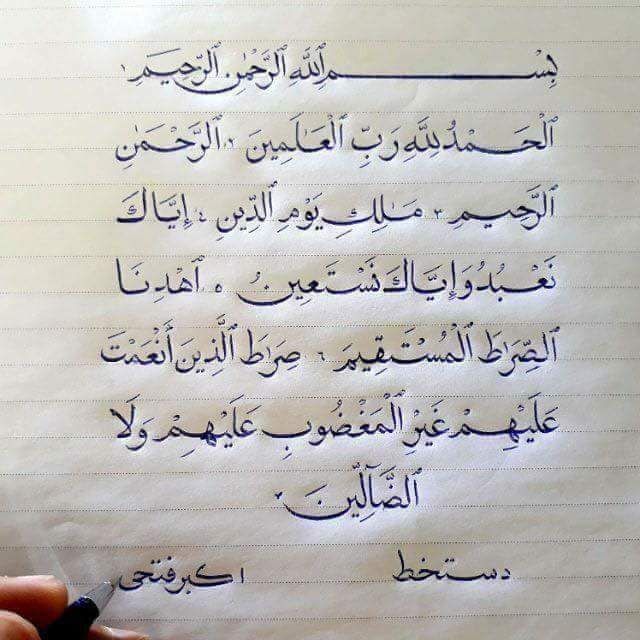 بِسْمِ ٱللَّهِ ٱلرَّحْمَٰنِ ٱلرَّحِيمِ ١
ٱلْحَمْدُ لِلَّهِ رَبِّ ٱلْعَٰلَمِينَ ٢ ٱلرَّحْمَٰنِ
ٱلرَّحِيمِ ٣ مَٰلِكِ يَوْمِ ٱلدِّينِ ٤ إِيَّاكَ
نَعْبُدُ وَإِيَّاكَ نَسْتَعِينُ ٥ ٱهْدِنَا
ٱلصِّرَٰطَ ٱلْمُسْتَقِيمَ ٦ صِرَٰطَ ٱلَّذِينَ أَنْعَمْتَ
عَلَيْهِمْ غَيْرِ ٱلْمَغْضُوبِ عَلَيْهِمْ وَلَا
ٱلضَّآلِّينَ ٧
دستخط اکبر فتحی